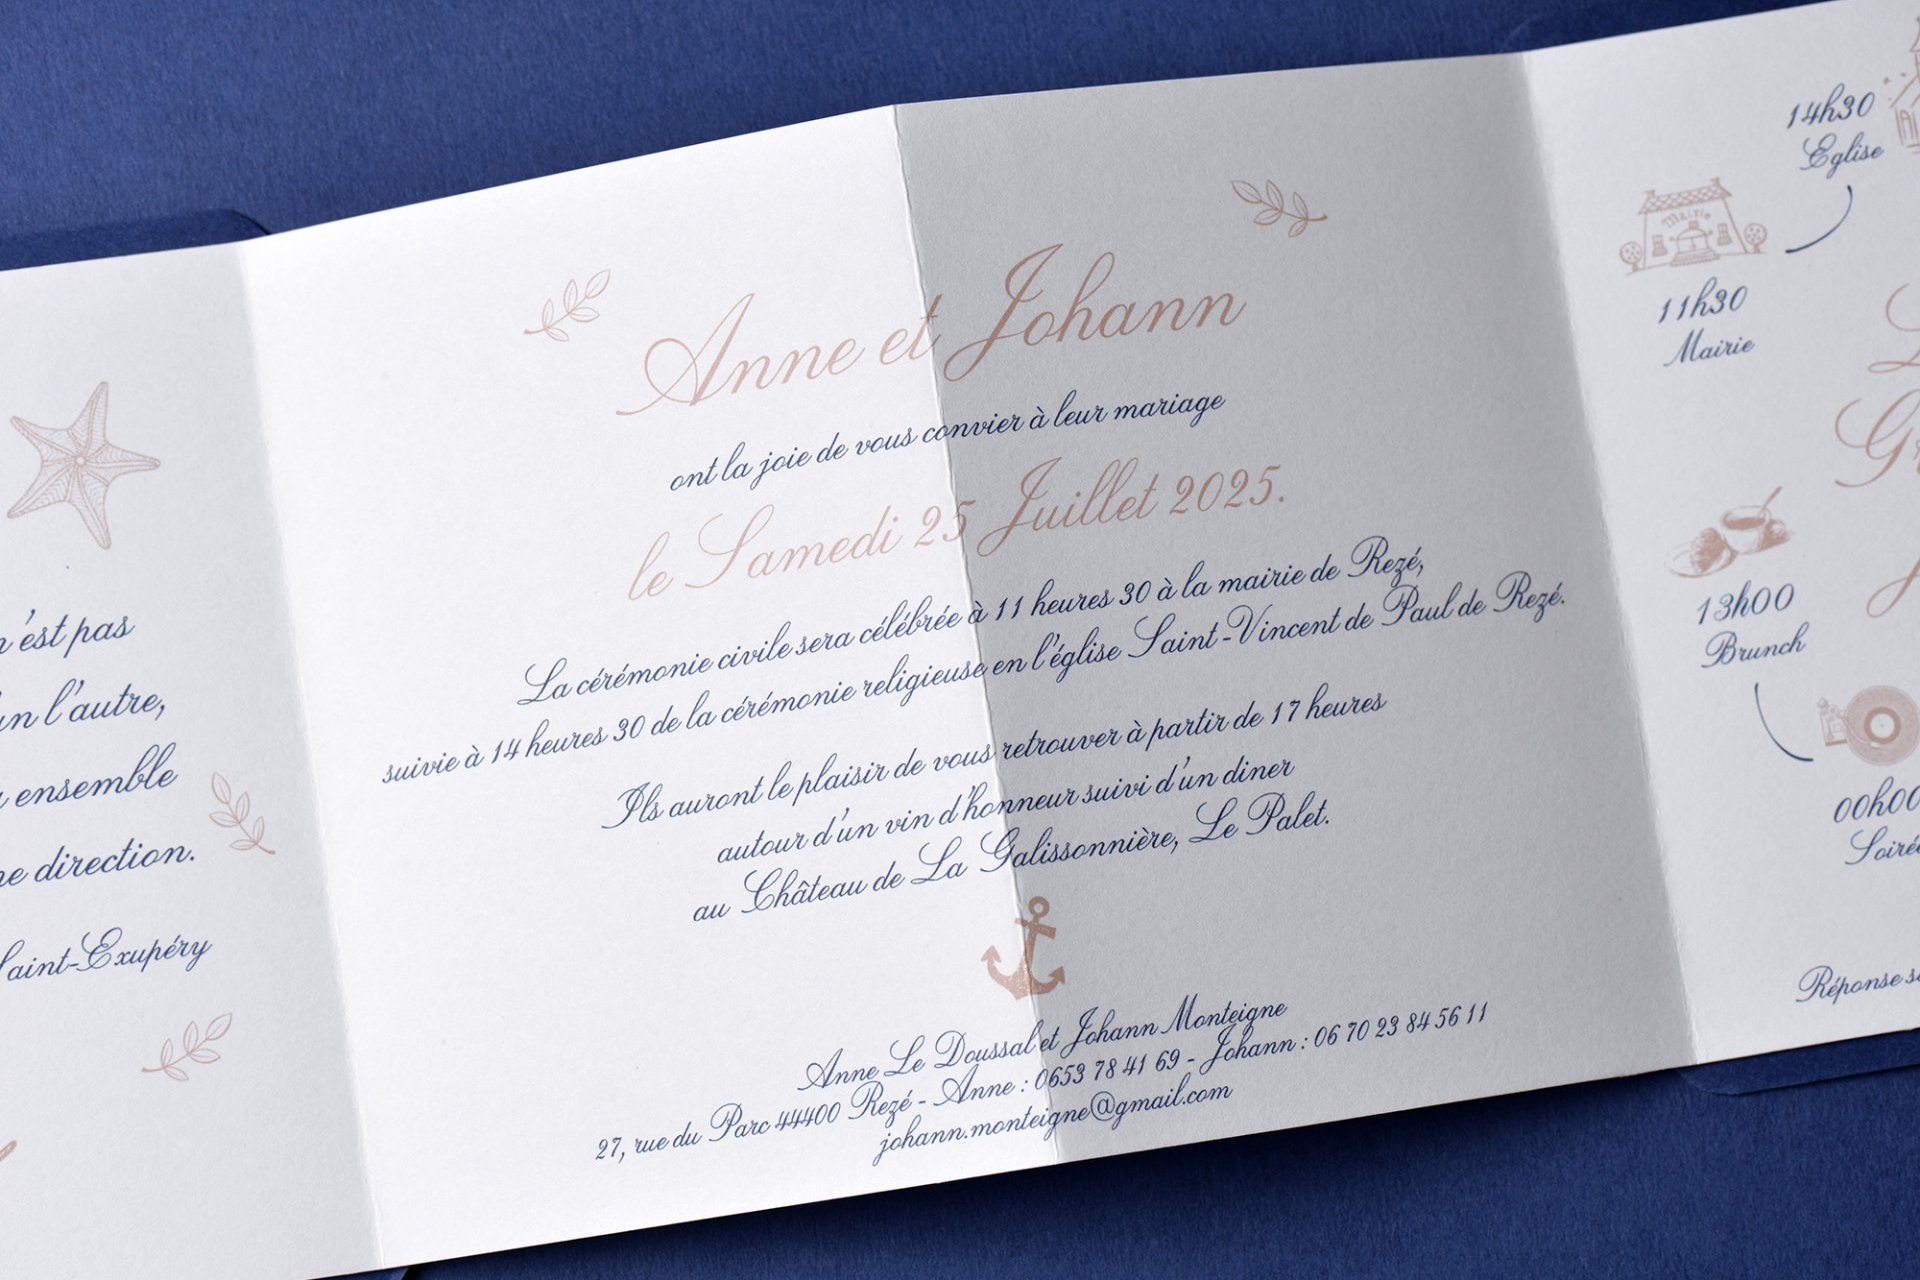 n'est pas
un l'autre,
ensemble
direction.
Saint-Exupéry
Anne et Johann
ont la joie de vous convier à leur mariage
le Samedi 25 Juillet 2025.
La cérémonie civile sera célébrée à 11 heures 30 à la mairie de Rezé,
suivie à 14 heures 30 de la cérémonie religieuse en l'église Saint-Vincent de Paul de Rezé.
Ils auront le plaisir de vous retrouver à partir de 17 heures
autour d'un vin d'honneur suivi d'un diner
au Château de La Galissonnière, Le Palet.
Anne Le Doussal et Johann Monteigne
27, rue du Parc 44400 Rezé - Anne : 0653 78 41 69 - Johann : 06 70 23 84 56 11
johann.monteigne@gmail.com
14h30
Eglise
Mairie
11h30
Mairie
13h00
Brunch
00h00
Soirée
Réponse